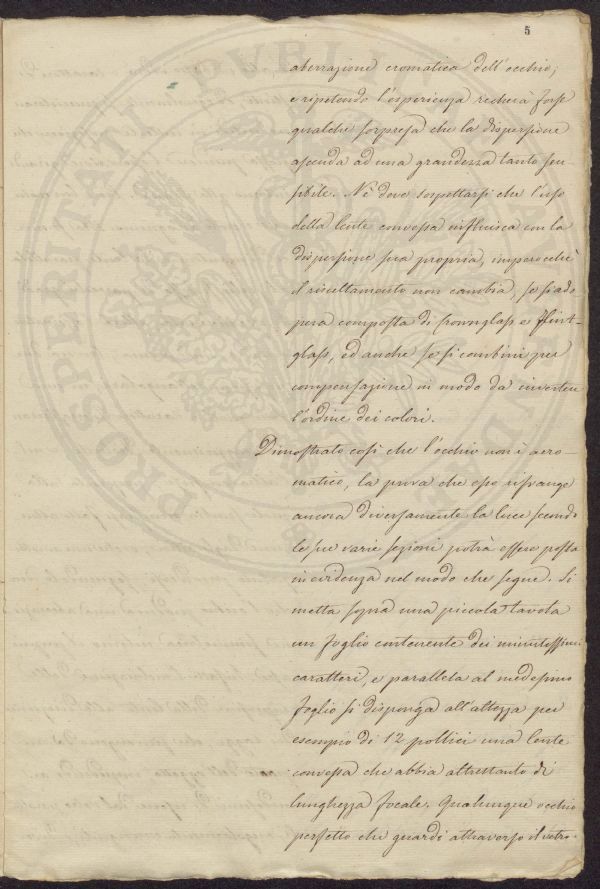 5
aberrazione cromatica dell'occhio;
e ripetendo l'esperienza recherà forse
qualche sorpresa che la dispersione
ascenda ad una grandezza tanto sen
sibile. Nè deve sospettarsi che l'uso
della lente convessa influisca con la
dispersione sua propria, imperocchè
il risultamento non cambia, se si ado
pera composta di Crownglass e Flint-
glass, ed anche se si combini per
compensazione in modo da invertere
l'ordine dei colori.
Dimostrato così che l'occhio non è acro-
matico, la prova che esso rifrange
ancora diversamente la luce secondo
le sue varie sezioni potrà essere posta
in evidenza nel modo che segue. Si
metta sopra una piccola tavola
un foglio contenente dei minutissimi
caratteri, e parallela al medesimo
foglio si disponga all'altezza per
esempio di 12 pollici una lente
convessa che abbia altrettanto di
lunghezza focale. Qualunque occhio
perfetto che guardi attraverso il vetro
PROSPERITATI PVBLICAE